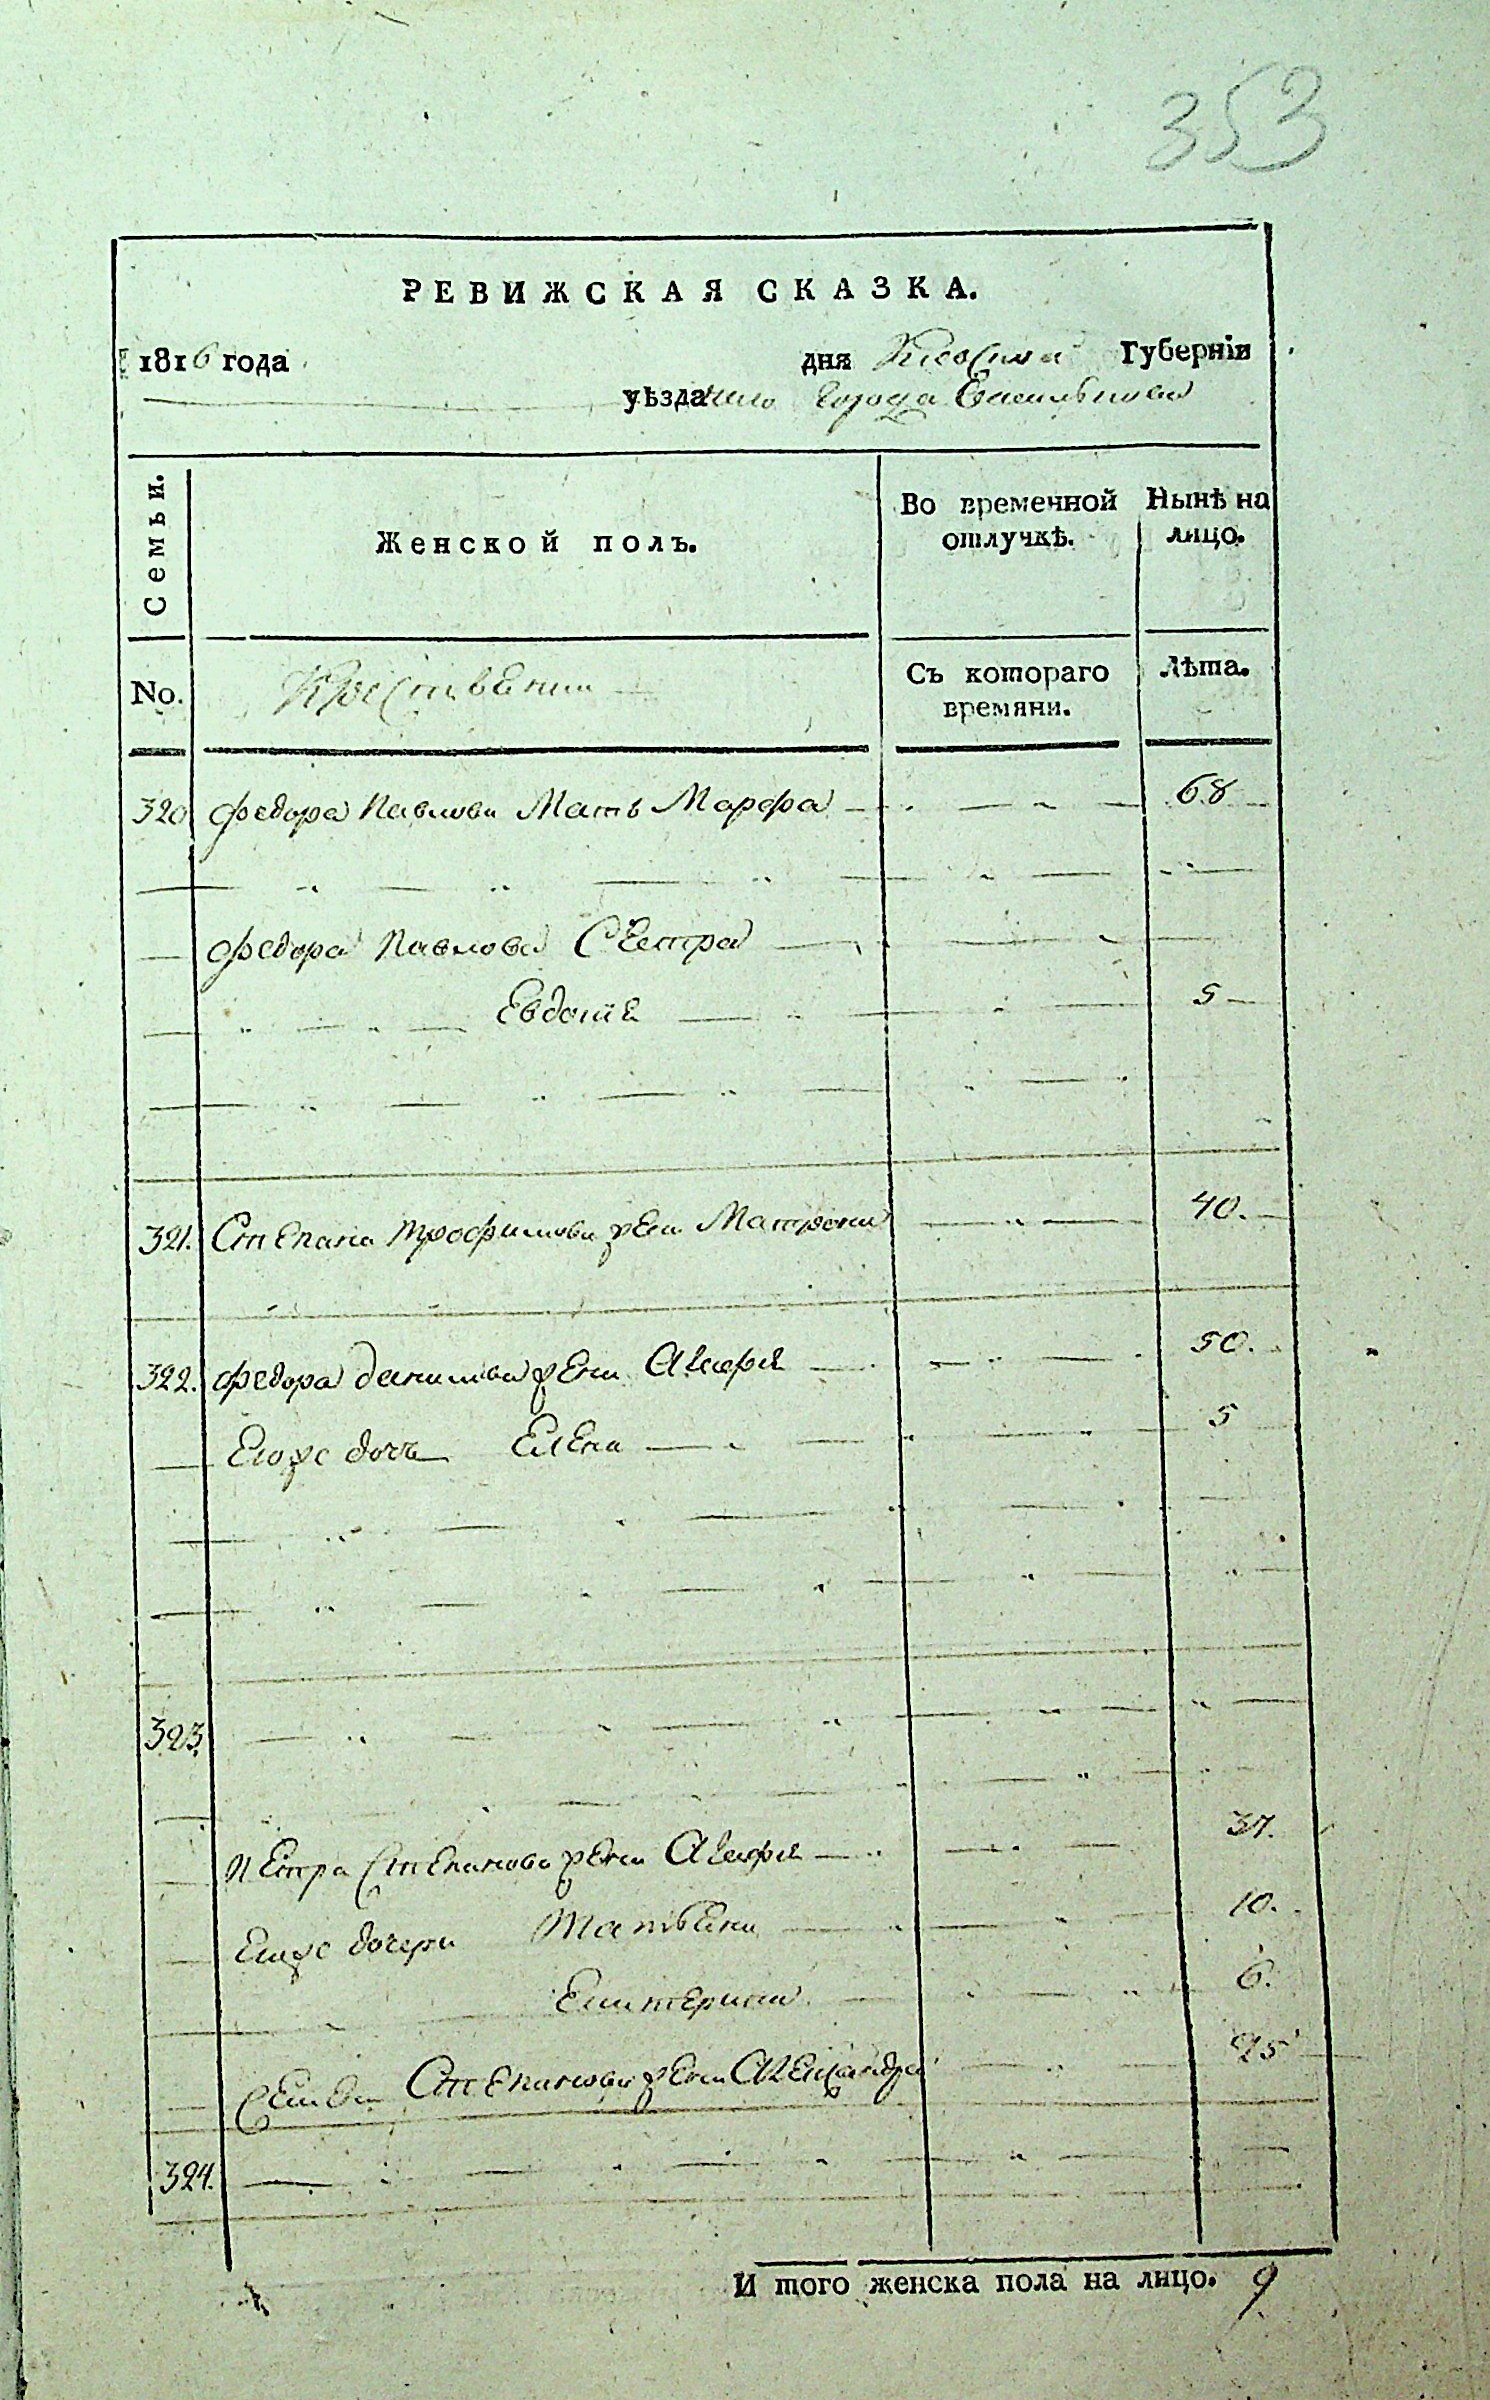 353
РЕВИЖСКАЯ СКАЗКА.
1816 года дня Киевской Губерніи
уѣзда города Василькова
Семьи.
Женской полъ.
Во временной отлучкѣ.
Нынѣ на лицо.
No.
Съ котораго времяни.
Лѣта.
320 Федора Павлова Мать Марфа 68
Федора Павлова Сестра
Евдокия 5
321. Степана Трофимова жена Матрона 40.
322. Федора Данилова жена 50.
Егоже дочь Елена 5
323.
Петра Степанова жена 37.
Егоже дочери Татьяна 10.
Екатерина 6.
Семена Степанова жена Александра 25
324.
И того женска пола на лицо. 9